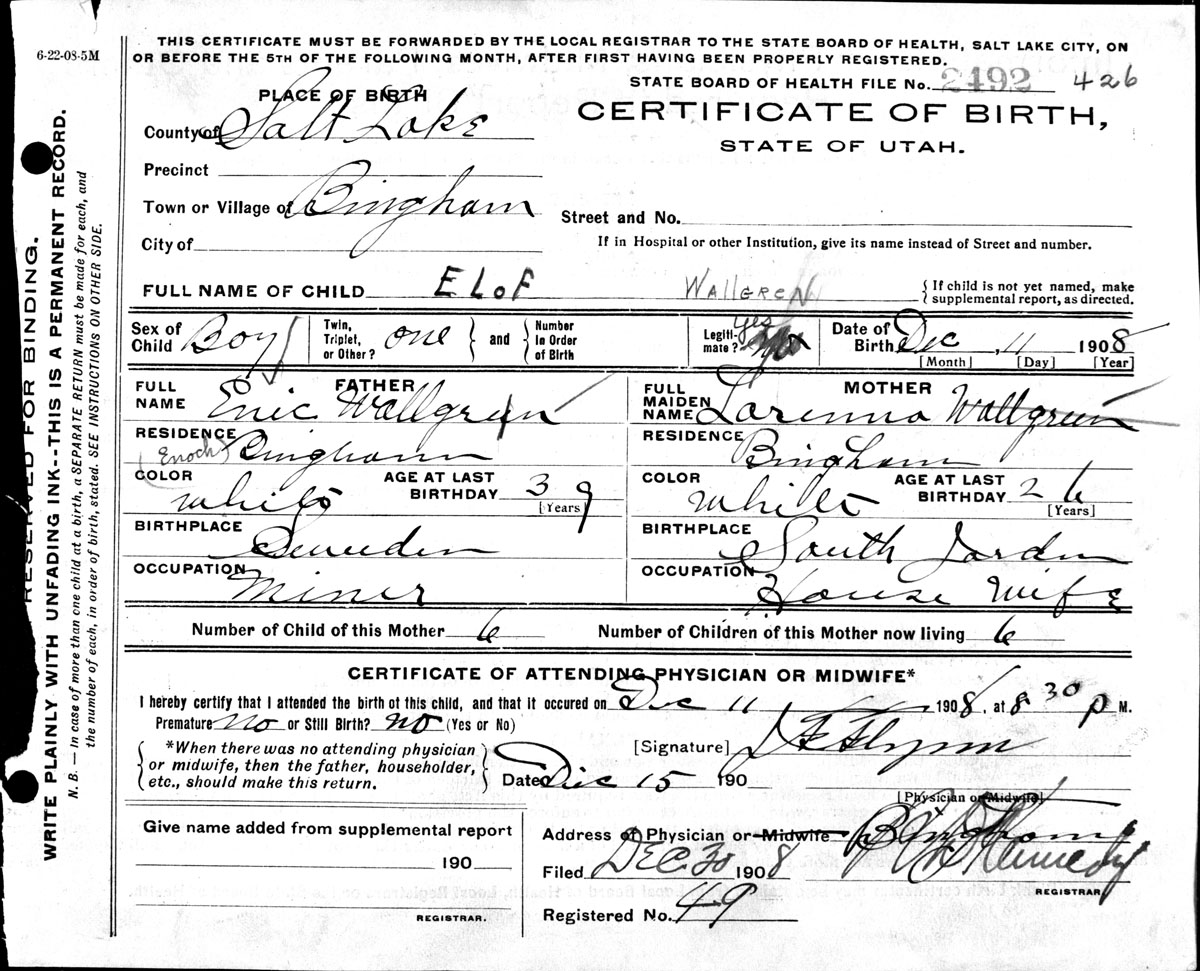 6-22-08-5M
THIS CERTIFICATE MUST BE FORWARDED BY THE LOCAL REGISTRAR TO THE STATE BOARD OF HEALTH, SALT LAKE CITY, ON
OR BEFORE THE 5TH OF THE FOLLOWING MONTH, AFTER FIRST HAVING BEEN PROPERLY REGISTERED.
STATE BOARD OF HEALTH FILE No. 2492 426
PLACE OF BIRTH
CERTIFICATE OF BIRTH,
STATE OF UTAH.
County of Salt Lake
Precinct
Town or Village of Bingham
Street and No.
City of
If in Hospital or other Institution, give its name instead of Street and number.
FULL NAME OF CHILD ELOF WALLGREN { If child is not yet named, make
supplemental report, as directed.
Sex of Child Boy Twin, Triplet, or Other? one } and { Number In Order of Birth Legiti-mate? yes Date of Birth Dec 11 1908
[Month] [Day] [Year]
FATHER
FULL NAME Eric Wallgren
MOTHER
FULL MAIDEN NAME Lorenna Wallgreen
RESIDENCE Bingham
(Enoch)
RESIDENCE Bingham
COLOR White AGE AT LAST BIRTHDAY 39 [Years]
COLOR White AGE AT LAST BIRTHDAY 26 [Years]
BIRTHPLACE Sweeden
BIRTHPLACE South Jordan
OCCUPATION Miner
OCCUPATION House Wife
Number of Child of this Mother 6 Number of Children of this Mother now living 6
CERTIFICATE OF ATTENDING PHYSICIAN OR MIDWIFE*
I hereby certify that I attended the birth of this child, and that it occured on Dec 11 1908, at 8 30 P M.
Premature no or Still Birth? no (Yes or No)
{ *When there was no attending physician
or midwife, then the father, householder,
etc., should make this return. }
[Signature] Flynn
Date Dec 15 190
[Physician or Midwife]
Give name added from supplemental report
190
REGISTRAR.
Address of Physician or Midwife Bingham
Filed DEC. 30 1908 Kennedy
REGISTRAR.
Registered No. 49
RESERVED FOR BINDING.
WRITE PLAINLY WITH UNFADING INK--THIS IS A PERMANENT RECORD.
N. B. — In case of more than one child at a birth, a SEPARATE RETURN must be made for each, and
the number of each, in order of birth, stated. SEE INSTRUCTIONS ON OTHER SIDE.